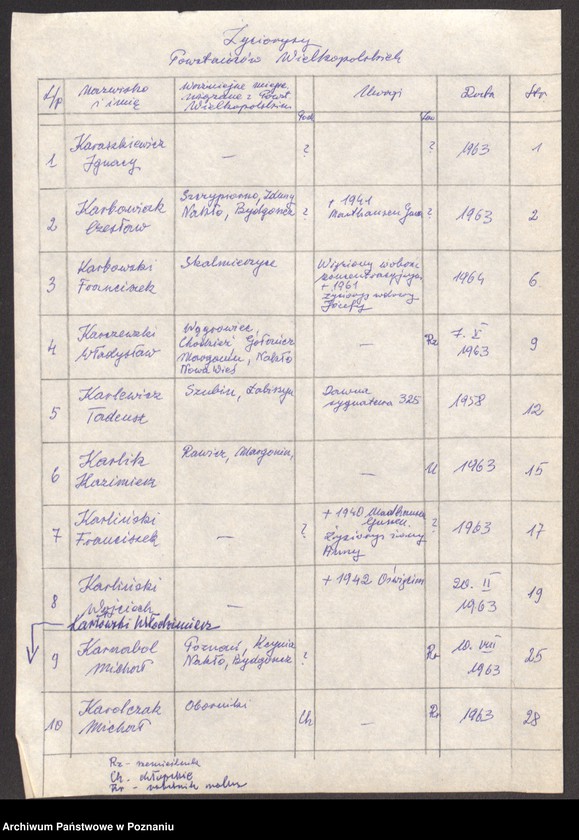 Życiorysy
Powstańców Wielkopolskich
L/p Nazwisko i imię Ważniejsze miejsc. związane z Powst. Wielkopolskim Uwagi Data Str.
1 Karaszkiewicz Ignacy — ? ? 1963 1
2 Karbowiak Czesław Szczypiorno, Zduny Nakło, Bydgoszcz ? + 1941 Mauthausen Gusen ? 1963 2
3 Karbowski Franciszek Skalmierzyce Więziony w obozie koncentracyjnym + 1961 życiorys wdowy Józefy 1964 6
4 Karczewski Władysław Wągrowiec, Chodzież Gołańcz Margonin, Nakło Nowa Wieś — Rz 7. X 1963 9
5 Karlewicz Tadeusz Szubin, Łabiszyn Dawna sygnatura 325 1958 12
6 Karlik Kazimierz Rawicz, Margonin, — U 1963 15
7 Karliński Franciszek — ? + 1940 Mauthausen Gusen. Życiorys żony Anny ? 1963 17
8 Karliński Wojciech — + 1942 Oświęcim 20. II 1963 19
Karłowski Włodzimierz
9 Karnabal Michał Poznań, Kcynia Nakło, Bydgoszcz ? Rr 10. VIII 1963 25
10 Karolczak Michał Oborniki Ch — Rr 1963 28
Rz - rzemieślnik
Ch. chłopskie
Rr - robotnik rolny
Archiwum Państwowe w Poznaniu